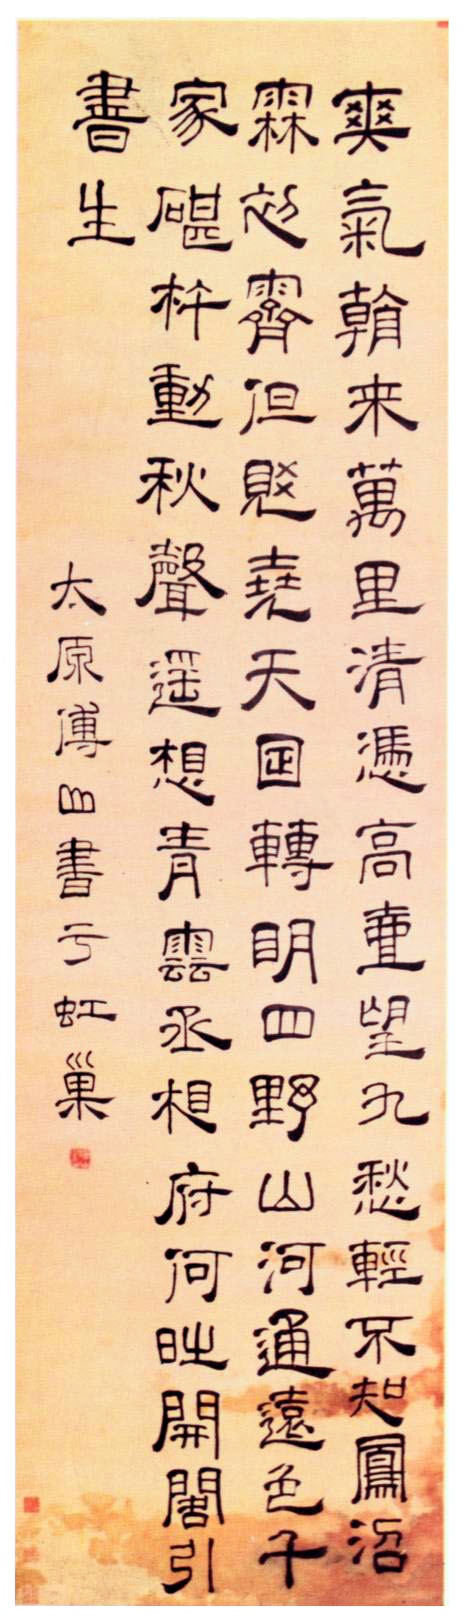 爽氣朝来萬里清憑高壹望九愁輕不知鳳沼
霖初霽但覺堯天囸轉眀四野山河通遠色千
家碪杵動秋聲遥想青雲丞相府何旹開閤引
書生
太原傅山書亏虹巢